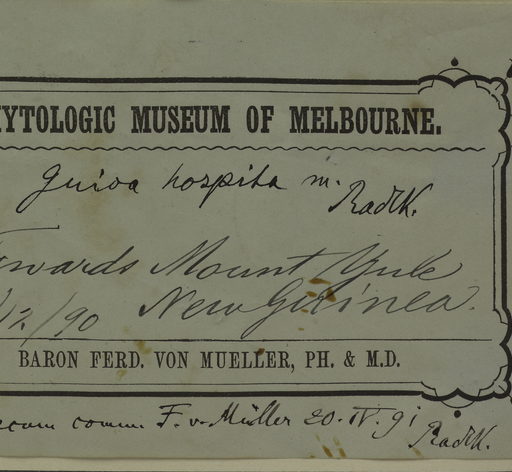 HYTOLOGIC MUSEUM OF MELBOURNE.
Guioa hospita m. Radlk.
Towards Mount Yule
/12/90 New Guinea.
BARON FERD. VON MUELLER, PH. & M.D.
comm F. v. Müller 20. IV. 91
Radlk.